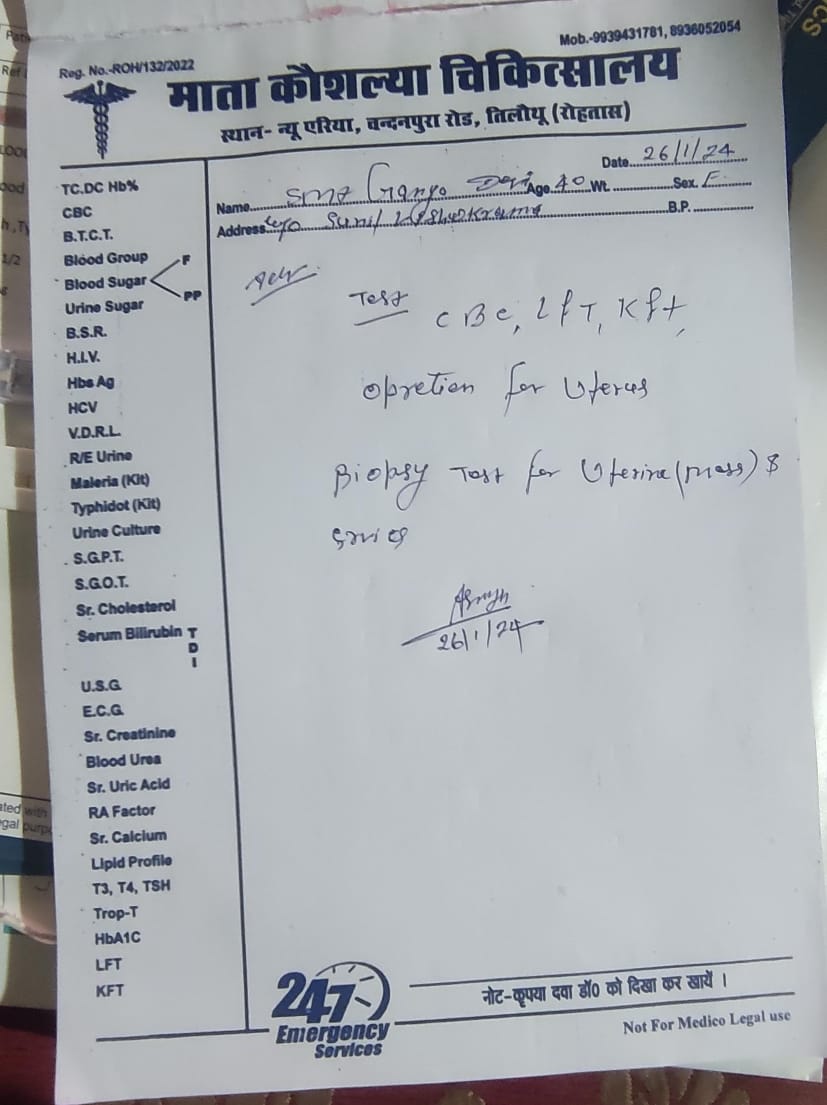 Mob.-9939431781, 8936052054
Reg. No.-ROH/132/2022
माता कौशल्या चिकित्सालय
स्थान- न्यू एरिया, चन्दनपुरा रोड, तिलौथू (रोहतास)
Date 26/1/24
Name Devi Age 40 Wt. Sex. F
Address Sunil B.P.
TC.DC Hb%
CBC
B.T.C.T.
Blood Group
Blood Sugar F PP
Urine Sugar
B.S.R.
H.I.V.
Hbs Ag
HCV
V.D.R.L.
R/E Urine
Maleria (Kit)
Typhidot (Kit)
Urine Culture
S.G.P.T.
S.G.O.T.
Sr. Cholesterol
Serum Bilirubin T D I
U.S.G
E.C.G
Sr. Creatinine
Blood Urea
Sr. Uric Acid
RA Factor
Sr. Calcium
Lipid Profile
T3, T4, TSH
Trop-T
HbA1C
LFT
KFT
Adv.
Test CBC, LfT, Kft,
Opretion for Uterus
Biopsy Test for Uterine (mass) &
26/1/24
247
Emergency
Services
नोट-कृपया दवा डॉ0 को दिखा कर खायें ।
Not For Medico Legal use